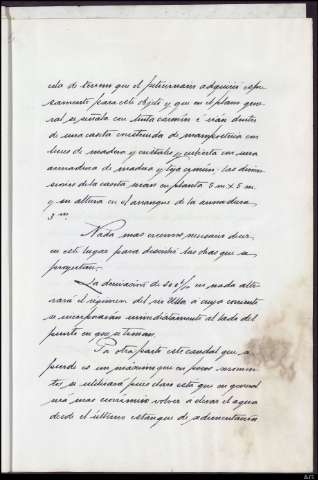 celo de terreno que el peticionario adquirirá expre-
samente para este objeto y que en el plano gene-
ral se señala con tinta carmín é irán dentro
de una caseta construida de mampostería con
luces de madera y cristales y cubierta con una
armadura de madera y teja común. Las dimen-
siones de la caseta serán en planta 5 m x 5 m.
y su altura en el arranque de la armadura
3 m.
Nada mas creemos necesario decir
en este lugar para describir las obras que se
proyectan.
La derivación de en nada alte-
rará el régimen del rio Ulla a cuya corriente
se incorporarán inmediatamente al lado del
punto en que se toman.
Por otra parte este caudal que se
pierde es un máximo que en pocos momen-
tos se utilizará pues claro está que en general
será mas económico volver a elevar el agua
desde el último estanque de sedimentación